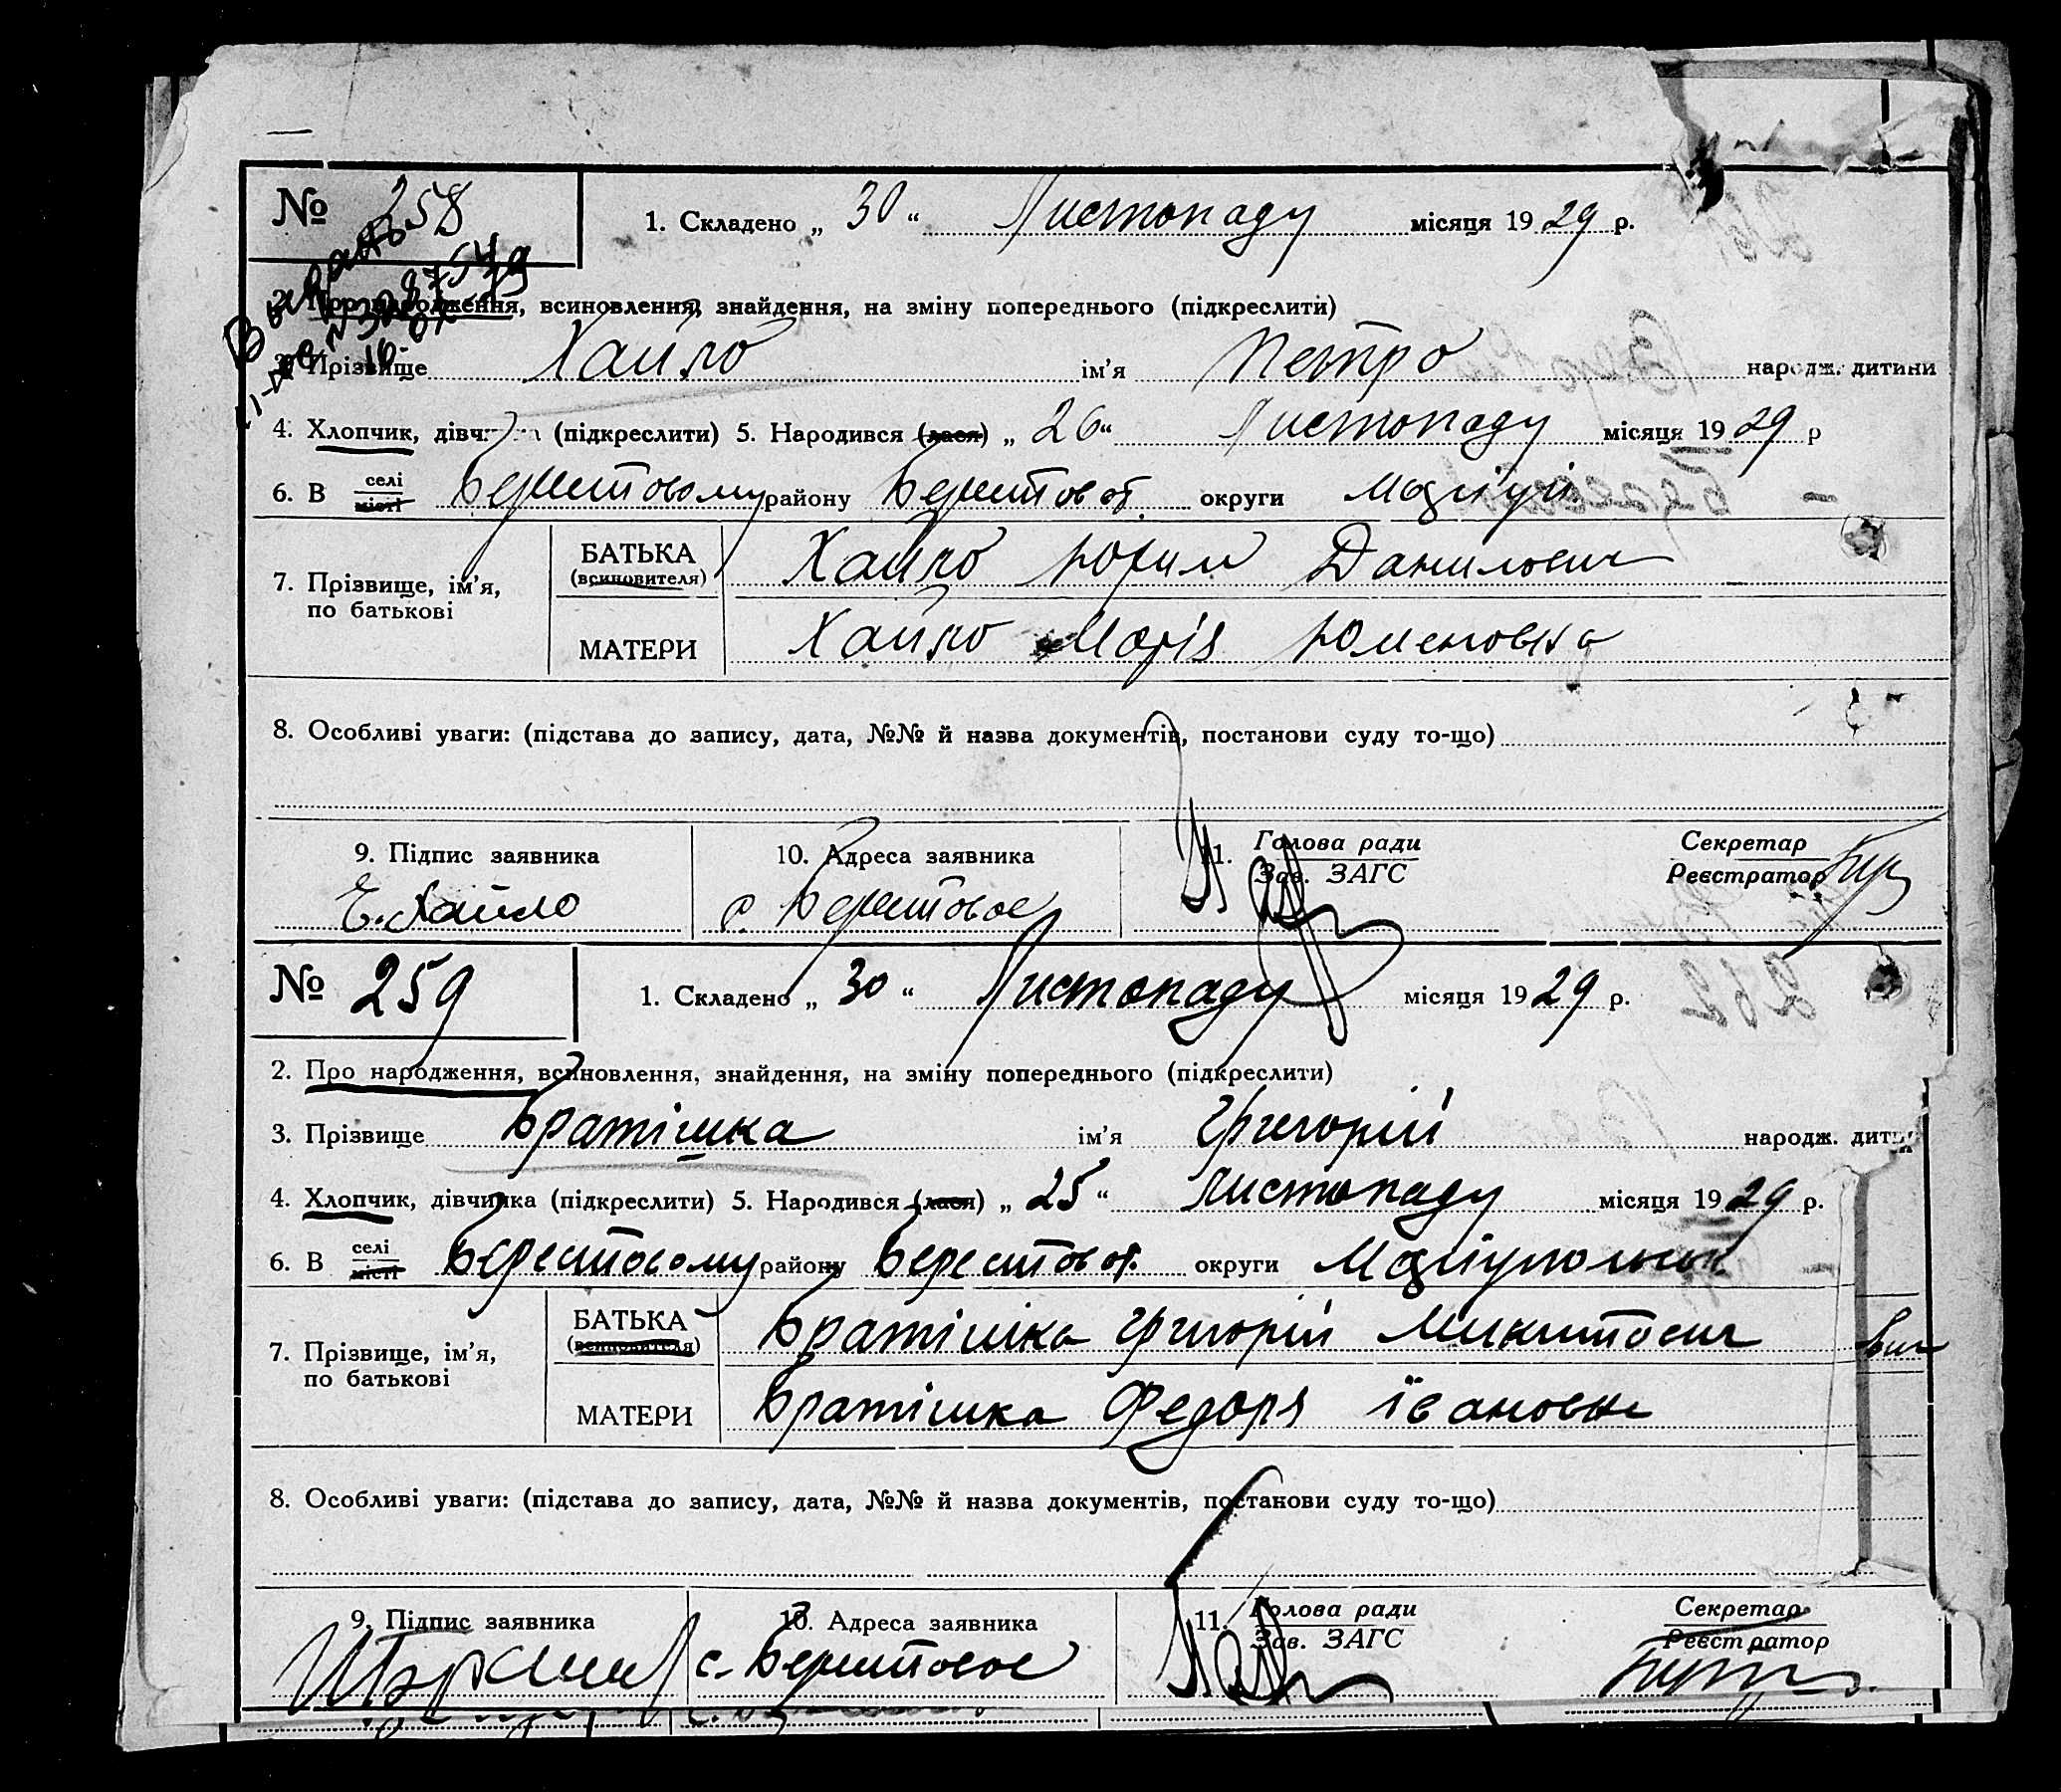 № 258
1. Складено „ 30 “ Листопаду місяця 1929 р.
2. Про народження, всиновлення, знайдення, на зміну попереднього (підкреслити)
3. Прізвище Хайло ім’я Петро народж. дитини
4. Хлопчик, дівчинка (підкреслити) 5. Народився (лася) „ 26 “ Листопаду місяця 1929 р
6. В селі місті Берестовому району Берестовот. округи
7. Прізвище, ім’я, по батькові
БАТЬКА (всиновителя) Хайло Юхим Данилович
МАТЕРИ Хайло Марія
8. Особливі уваги: (підстава до запису, дата, №№ й назва документів, постанови суду то-що)
9. Підпис заявника 10. Адреса заявника 11. Голова ради Зав. ЗАГС Секретар Реєстратор
Є. Хайло с. Берестовое
№ 259
1. Складено „ 30 “ Листопаду місяця 1929 р.
2. Про народження, всиновлення, знайдення, на зміну попереднього (підкреслити)
3. Прізвище Братішка ім’я Григорій народж. дити
4. Хлопчик, дівчинка (підкреслити) 5. Народився (лася) „ 25 “ Листопаду місяця 1929 р.
6. В селі місті Берестовому району Берестовот. округи Маріупольськ.
7. Прізвище, ім’я, по батькові
БАТЬКА (всиновителя) Братішка Григорій Микитович
МАТЕРИ Братішка Федоря Івановна
8. Особливі уваги: (підстава до запису, дата, №№ й назва документів, постанови суду то-що)
9. Підпис заявника 10. Адреса заявника 11. Голова ради Зав. ЗАГС Секретар Реєстратор
с. Берестовое